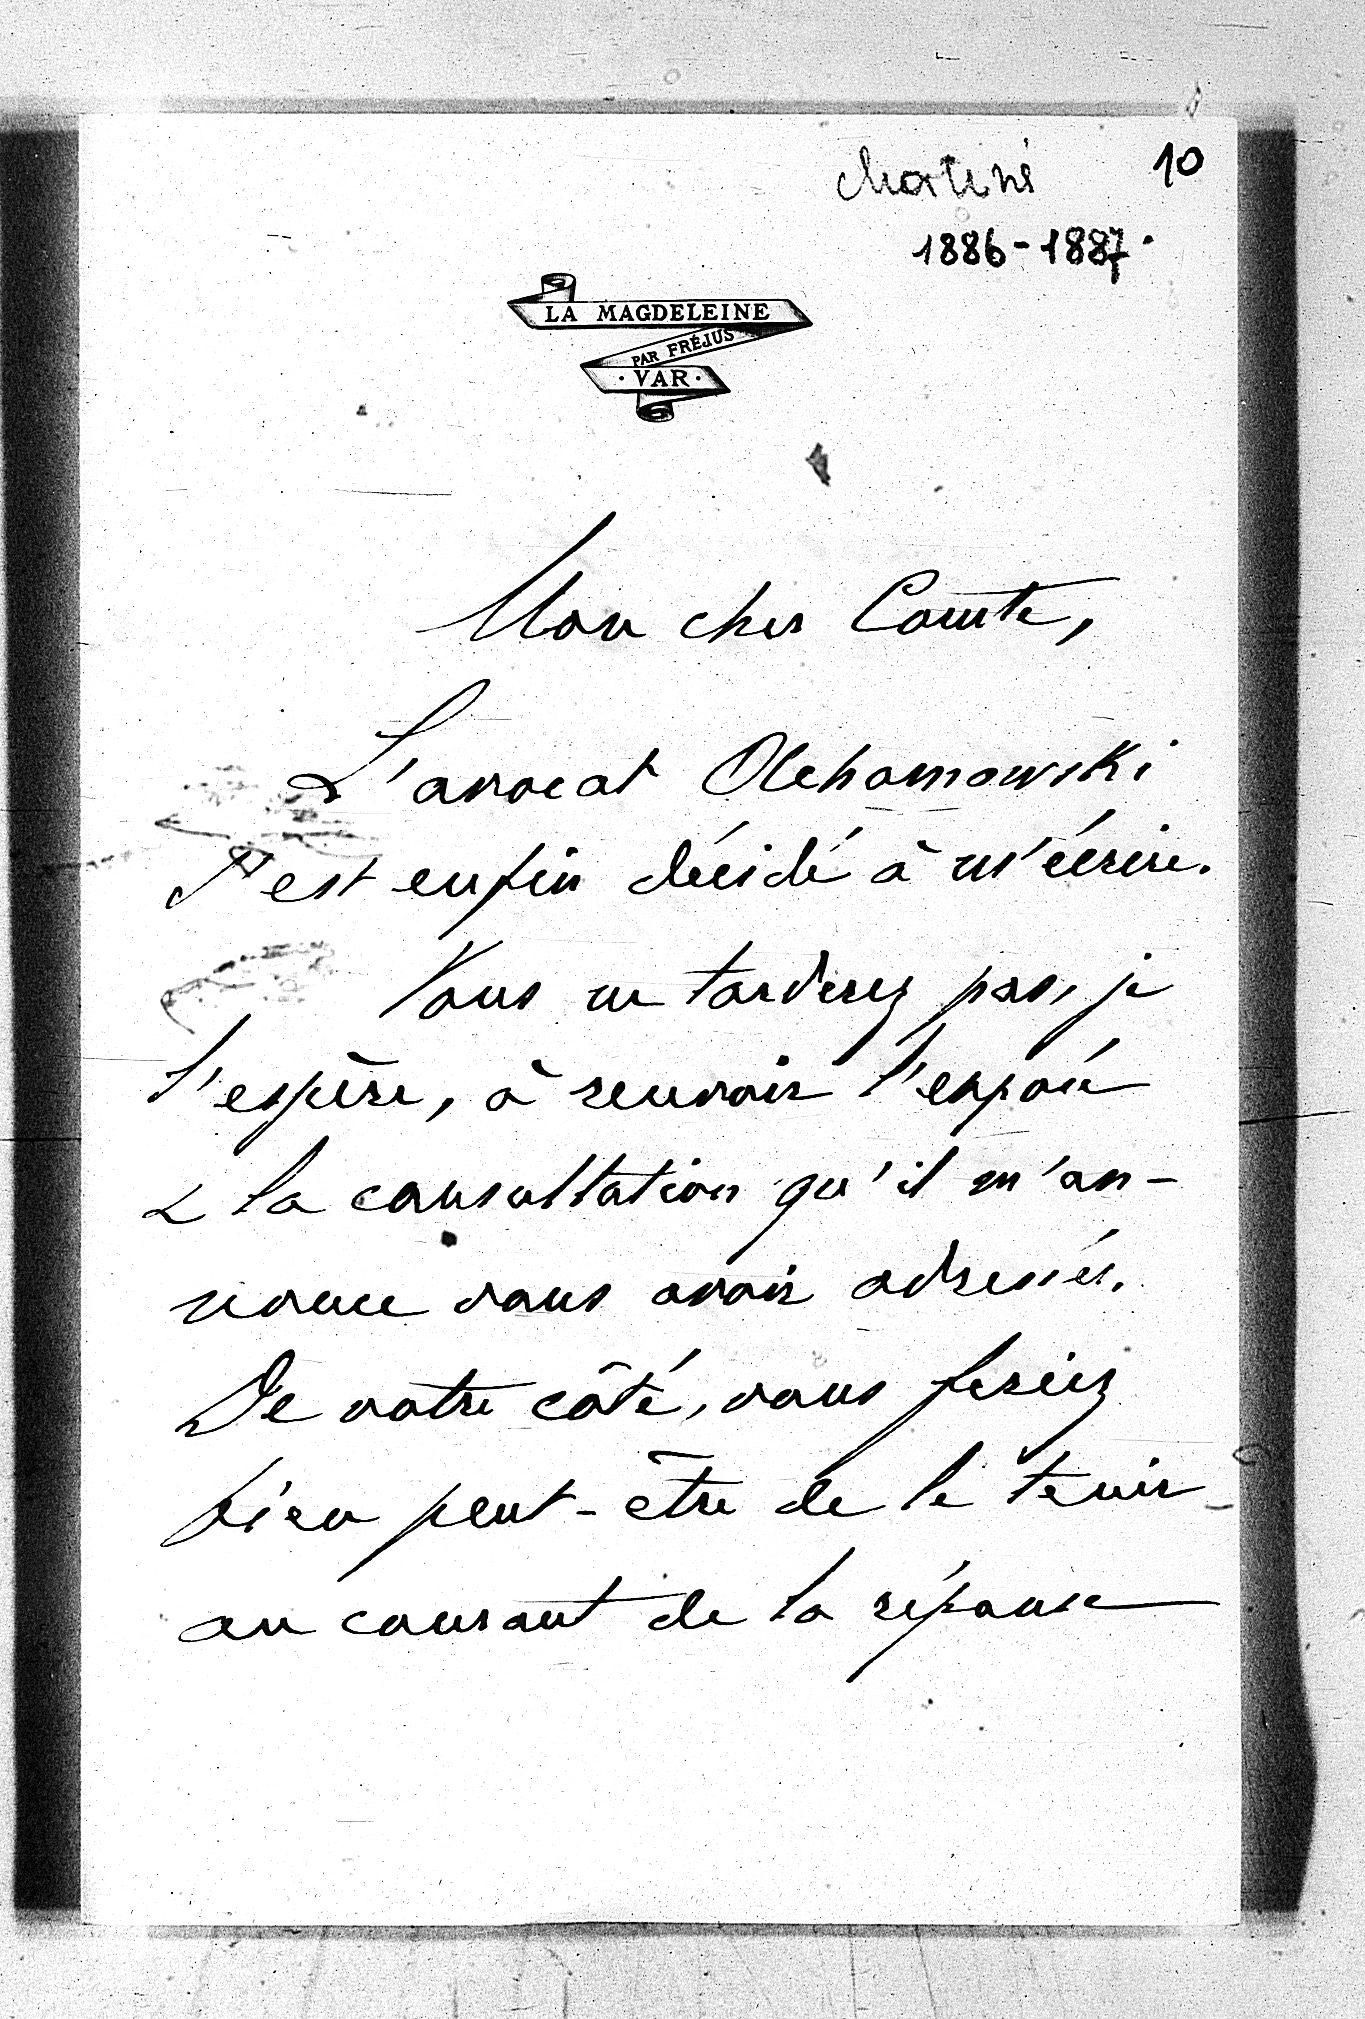 10
1886-1887.
LA MAGDELEINE
PAR FRÉJUS
· VAR ·
Mon cher Comte,
L'avocat Olchomowski
s'est enfin décidé à m'écrire.
Vous ne tarderez pas, je
l'espère, à recevoir l'exposé
& la consultation qu'il m'an-
nonce vous avoir adressés.
De votre côté, vous feriez
bien peut-être de le tenir
au courant de la réponse